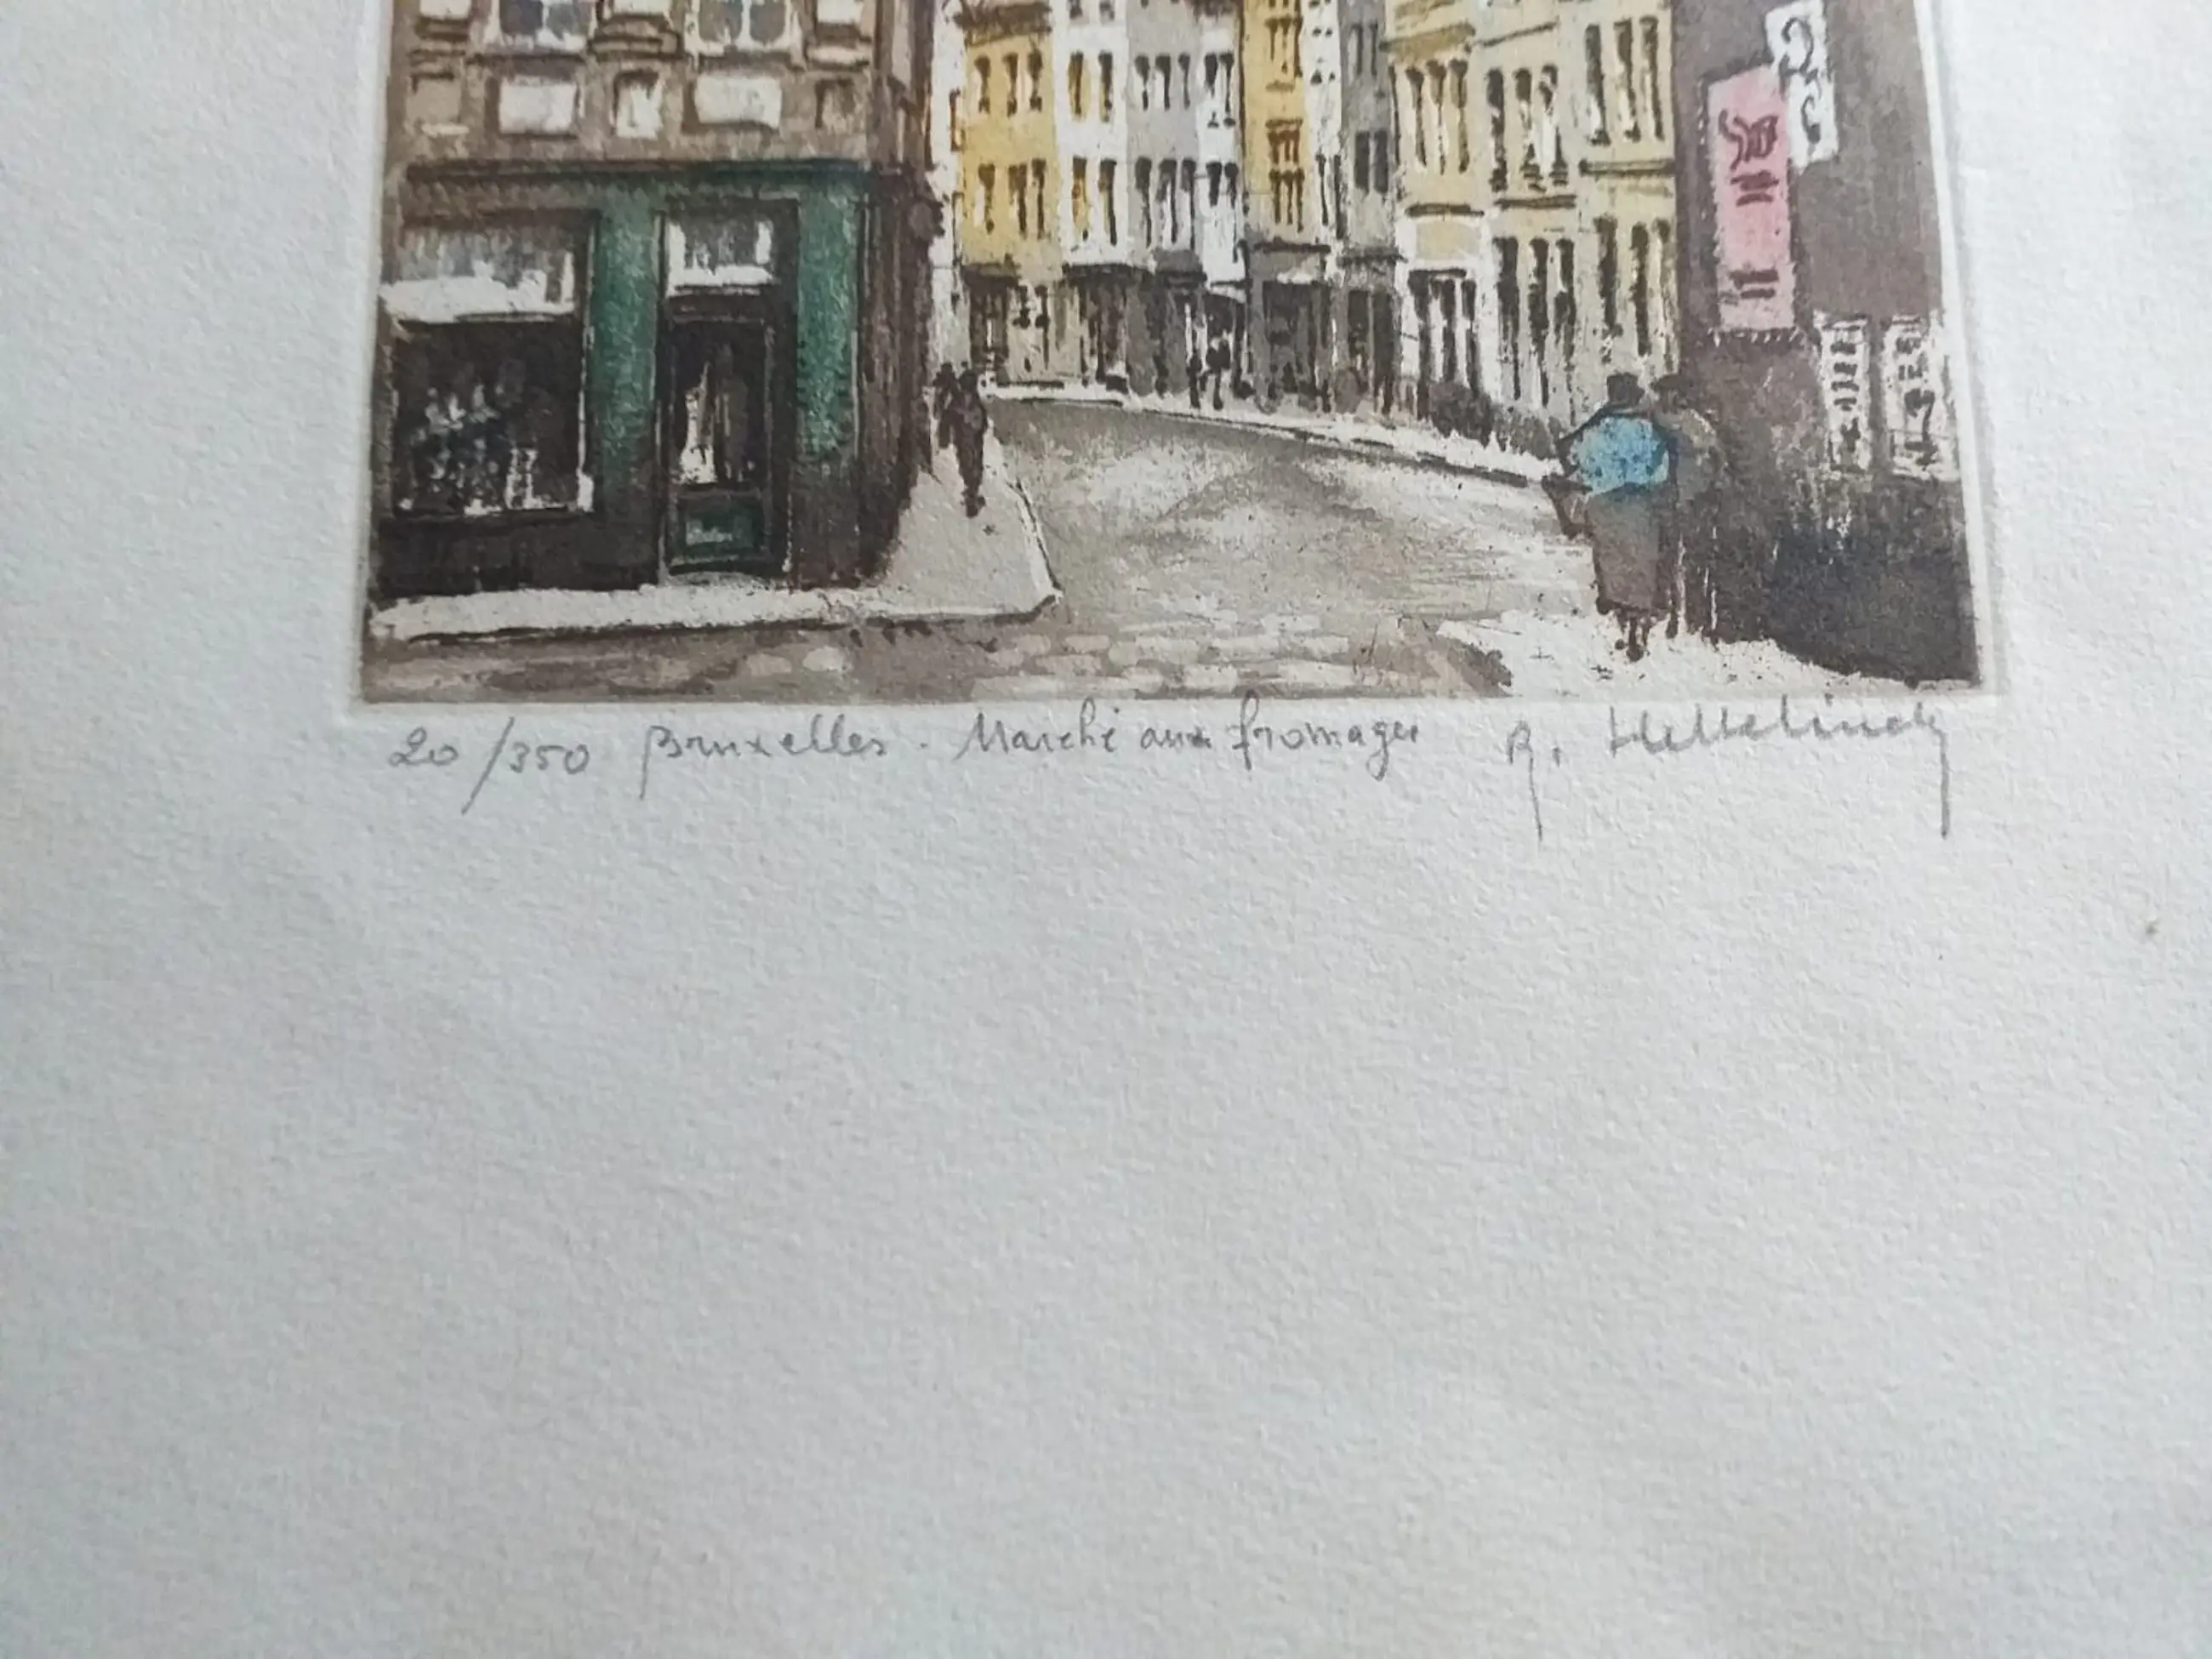 20/350 Bruxelles - Marché aux fromages R. Hettelinck